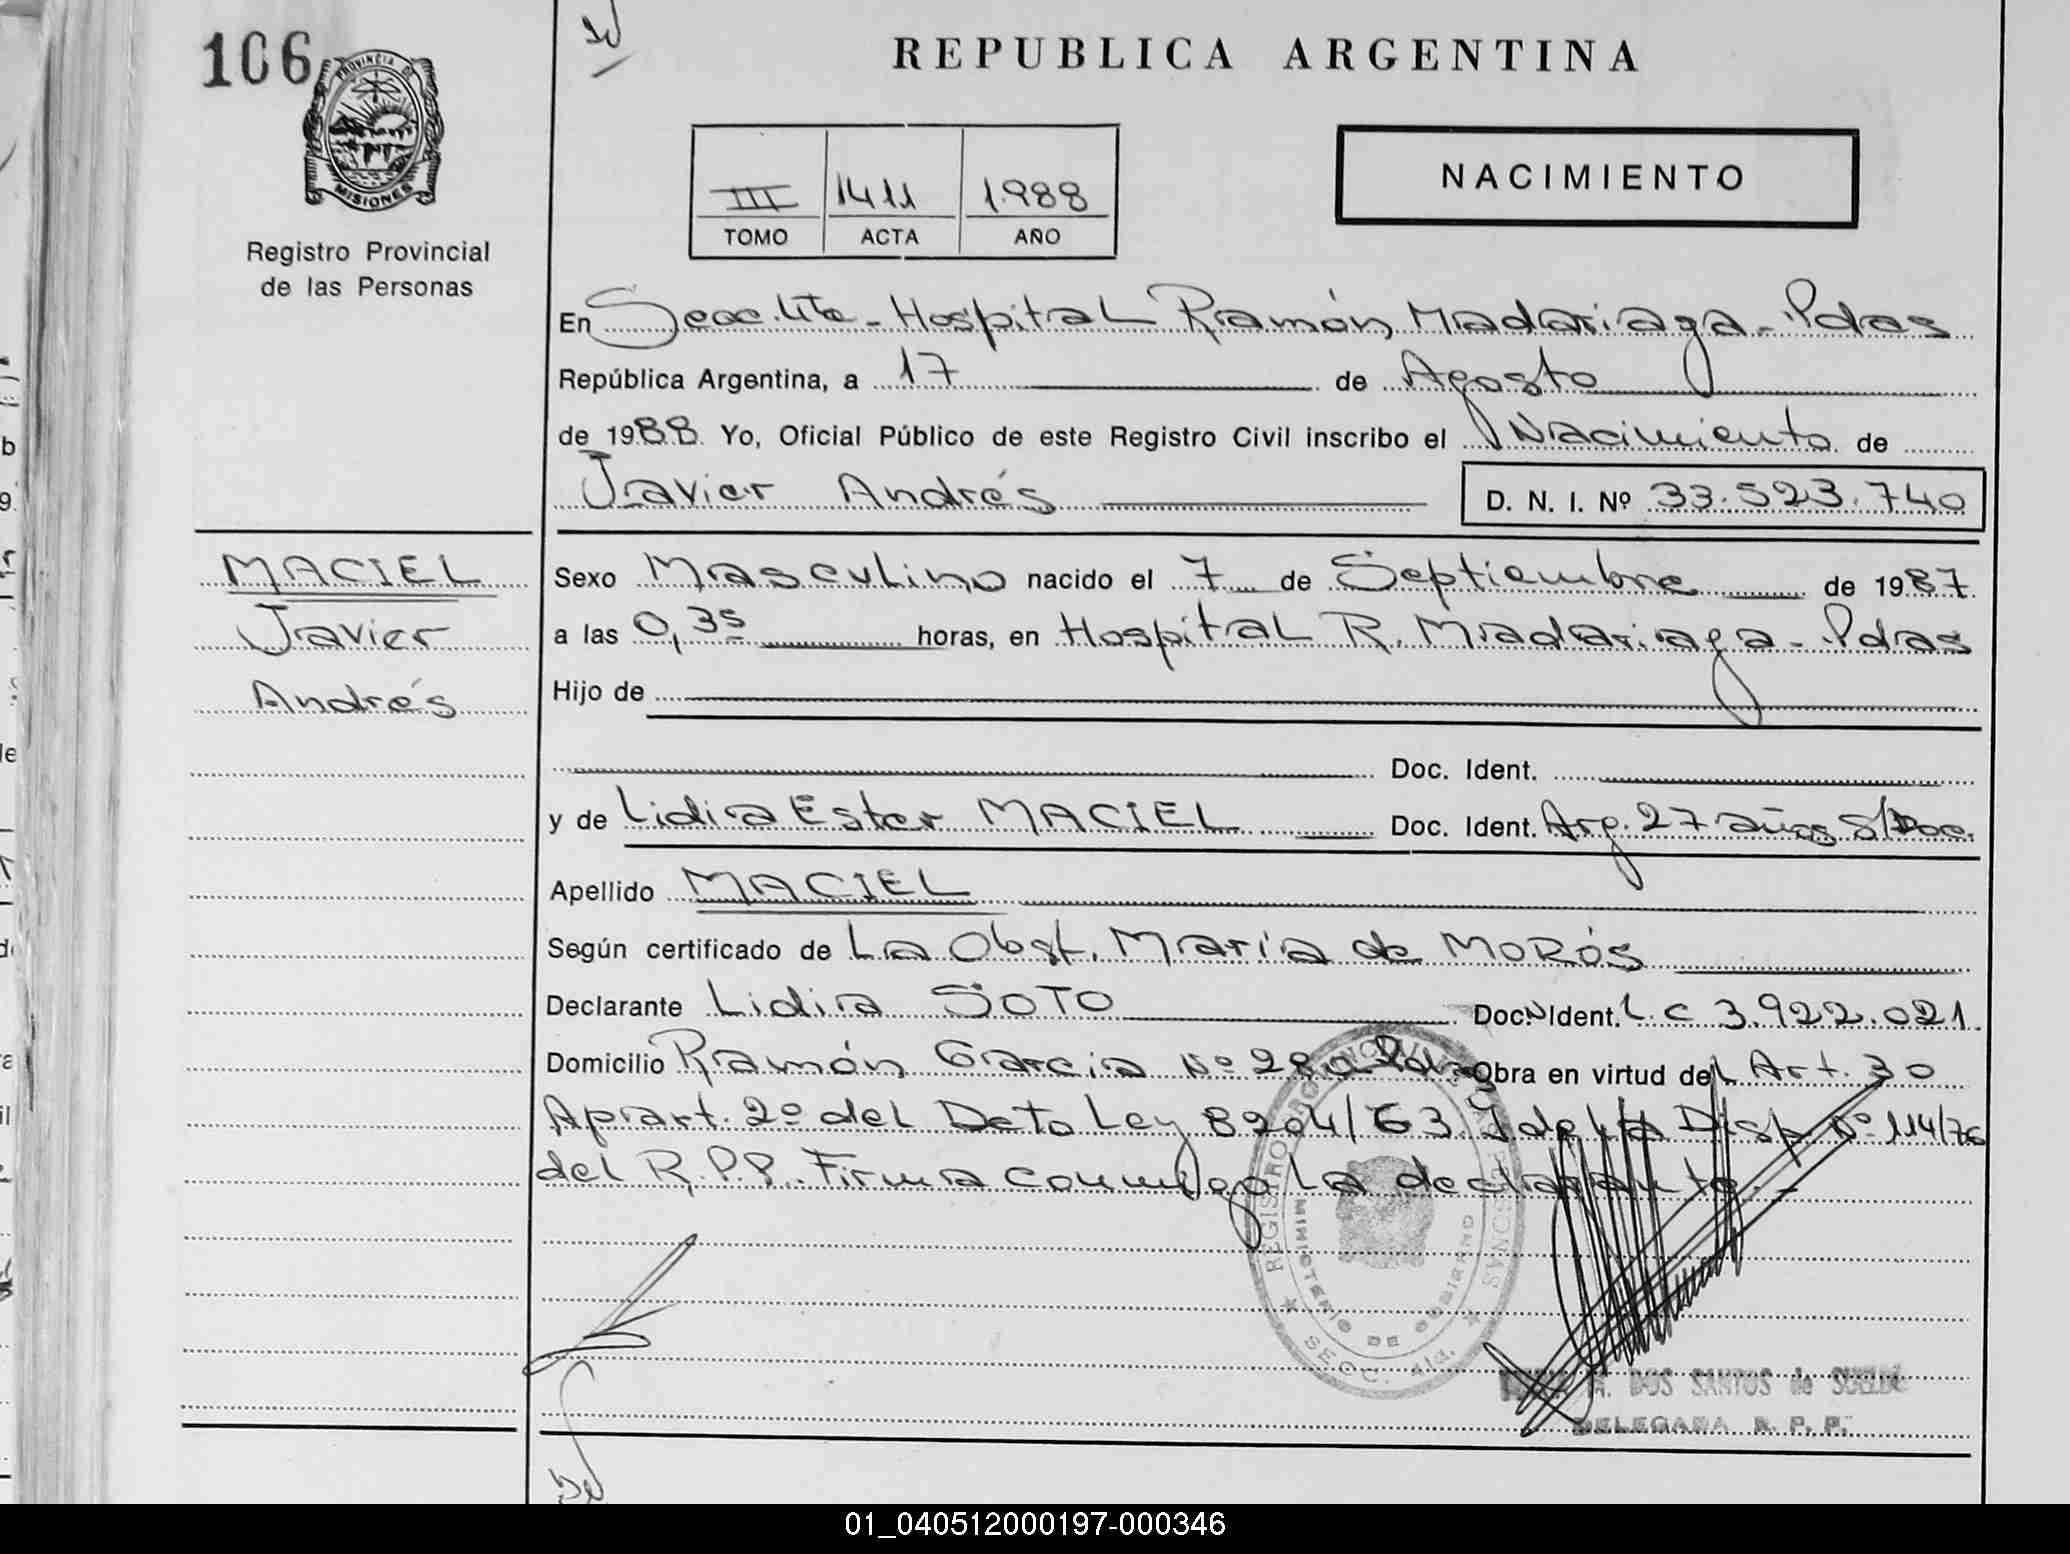 106
REPUBLICA ARGENTINA
PROVINCIA DE
MISIONES
Registro Provincial
de las Personas
III 1411 1.988
TOMO ACTA AÑO
NACIMIENTO
En Secc. 4ta - Hospital Ramón Madariaga - Pdas
República Argentina, a 17 de Agosto
de 1988 Yo, Oficial Público de este Registro Civil inscribo el Nacimiento de
Javier Andrés
D. N. I. Nº 33.523.740
MACIEL
Javier
Andrés
Sexo Masculino nacido el 7 de Septiembre de 1987
a las 0,35 horas, en Hospital R. Madariaga - Pdas
Hijo de
Doc. Ident.
y de Lidia Ester MACIEL Doc. Ident. Arg. 27 años S/Doc.
Apellido MACIEL
Según certificado de La Obst. María de MORÓS
Declarante Lidia SOTO Doc. Ident. L C 3.922.021.
Domicilio Ramón Garcia Nº 280 Pdas Obra en virtud del Art. 30
Apart. 2º del Dcto Ley 8204/63 Disp. Nº 114/76
del R.P.P. Firma conmigo la declarante. -
REGISTRO PROVINCIAL DE LAS PERSONAS
MINISTERIO DE GOBIERNO
SECC. 4ta.
DOS SANTOS de
DELEGADA R. P. P.
01_040512000197-000346